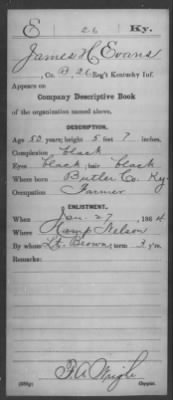 E 26 Ky.
James H Evans
, Co. B, 26 Reg't Kentucky Inf.
Appears on
Company Descriptive Book
of the organization named above.
DESCRIPTION.
Age 50 years; height 5 feet 7 inches.
Complexion black
Eyes black; hair black
Where born Butler Co. Ky
Occupation Farmer
ENLISTMENT.
When Jan. 27, 1864
Where Camp Nelson
By whom Lt. Brown; term 3 y'rs.
Remarks:
F. A. Wright
Copyist.